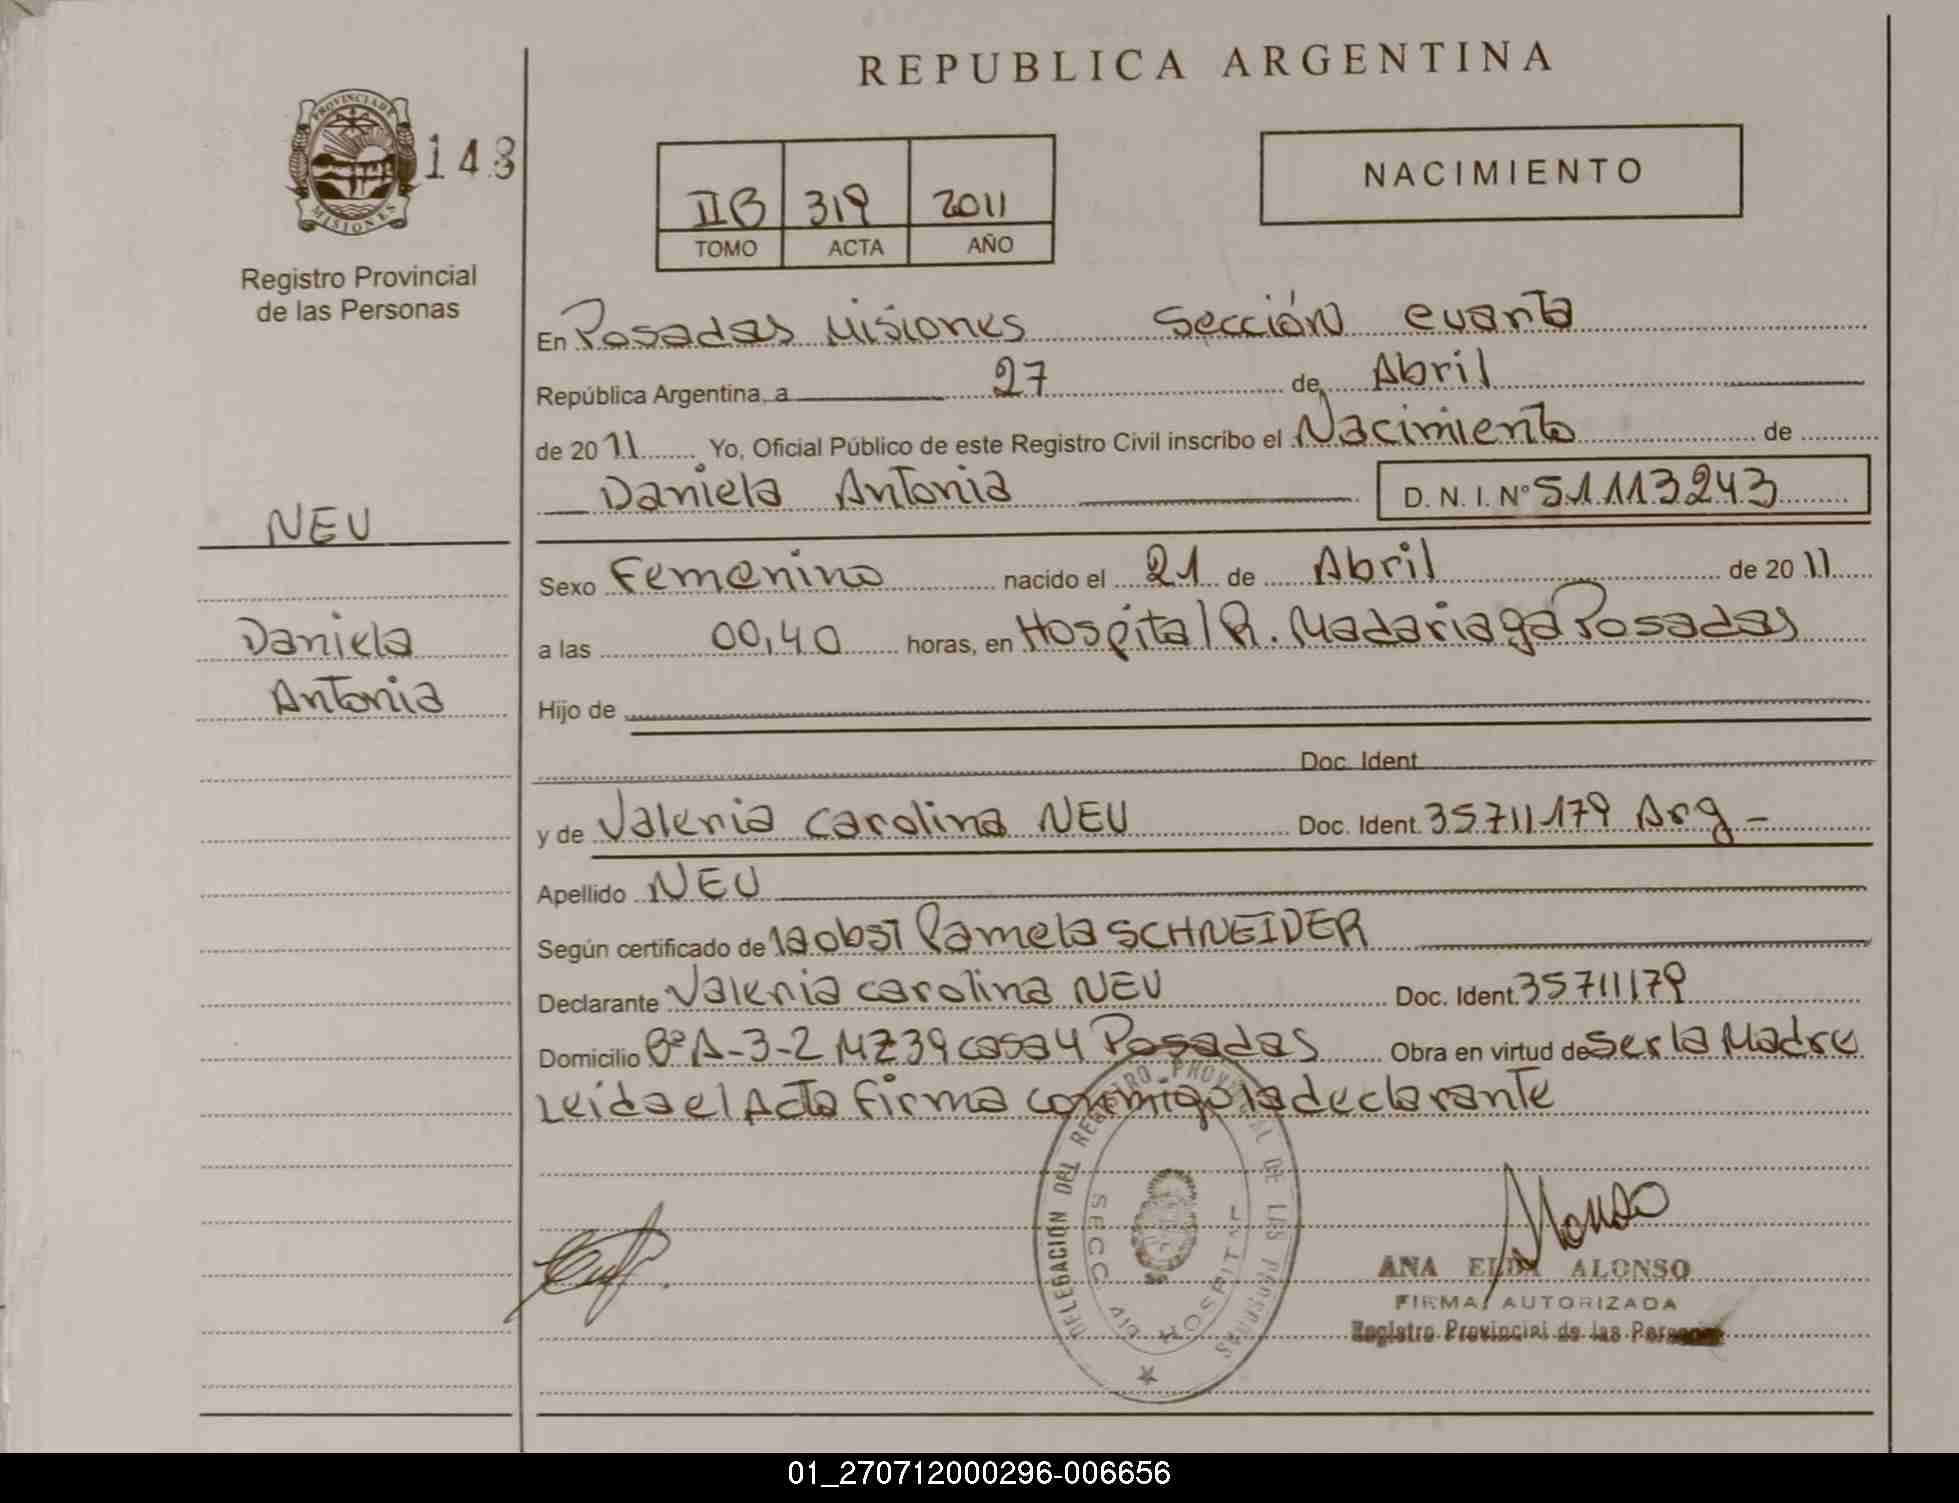 REPUBLICA ARGENTINA
PROVINCIA DE
MISIONES
148
Registro Provincial
de las Personas
IIB 319 2011
TOMO ACTA AÑO
NACIMIENTO
En Posadas Misiones Sección cuarta
República Argentina, a 27 de Abril
de 2011 Yo, Oficial Público de este Registro Civil inscribo el Nacimiento de
Daniela Antonia D. N. I. Nº 51113243
NEU
Daniela
Antonia
Sexo Femenino nacido el 21 de Abril de 2011
a las 00,40 horas, en Hospital R. Madariaga Posadas
Hijo de
Doc. Ident
y de Valeria Carolina NEU Doc. Ident. 35711179 Arg -
Apellido NEU
Según certificado de la obst Pamela SCHNEIDER
Declarante Valeria Carolina NEU Doc. Ident. 35711179
Domicilio Bº A-3-2 MZ39 casa 4 Posadas Obra en virtud de ser la Madre
Leida el Acta firma conmigo la declarante
DELEGACIÓN DEL REGISTRO PROVINCIAL DE LAS PERSONAS
SECC. HOSPITAL
ANA ELDA ALONSO
FIRMA AUTORIZADA
Registro Provincial de las Personas
01_270712000296-006656